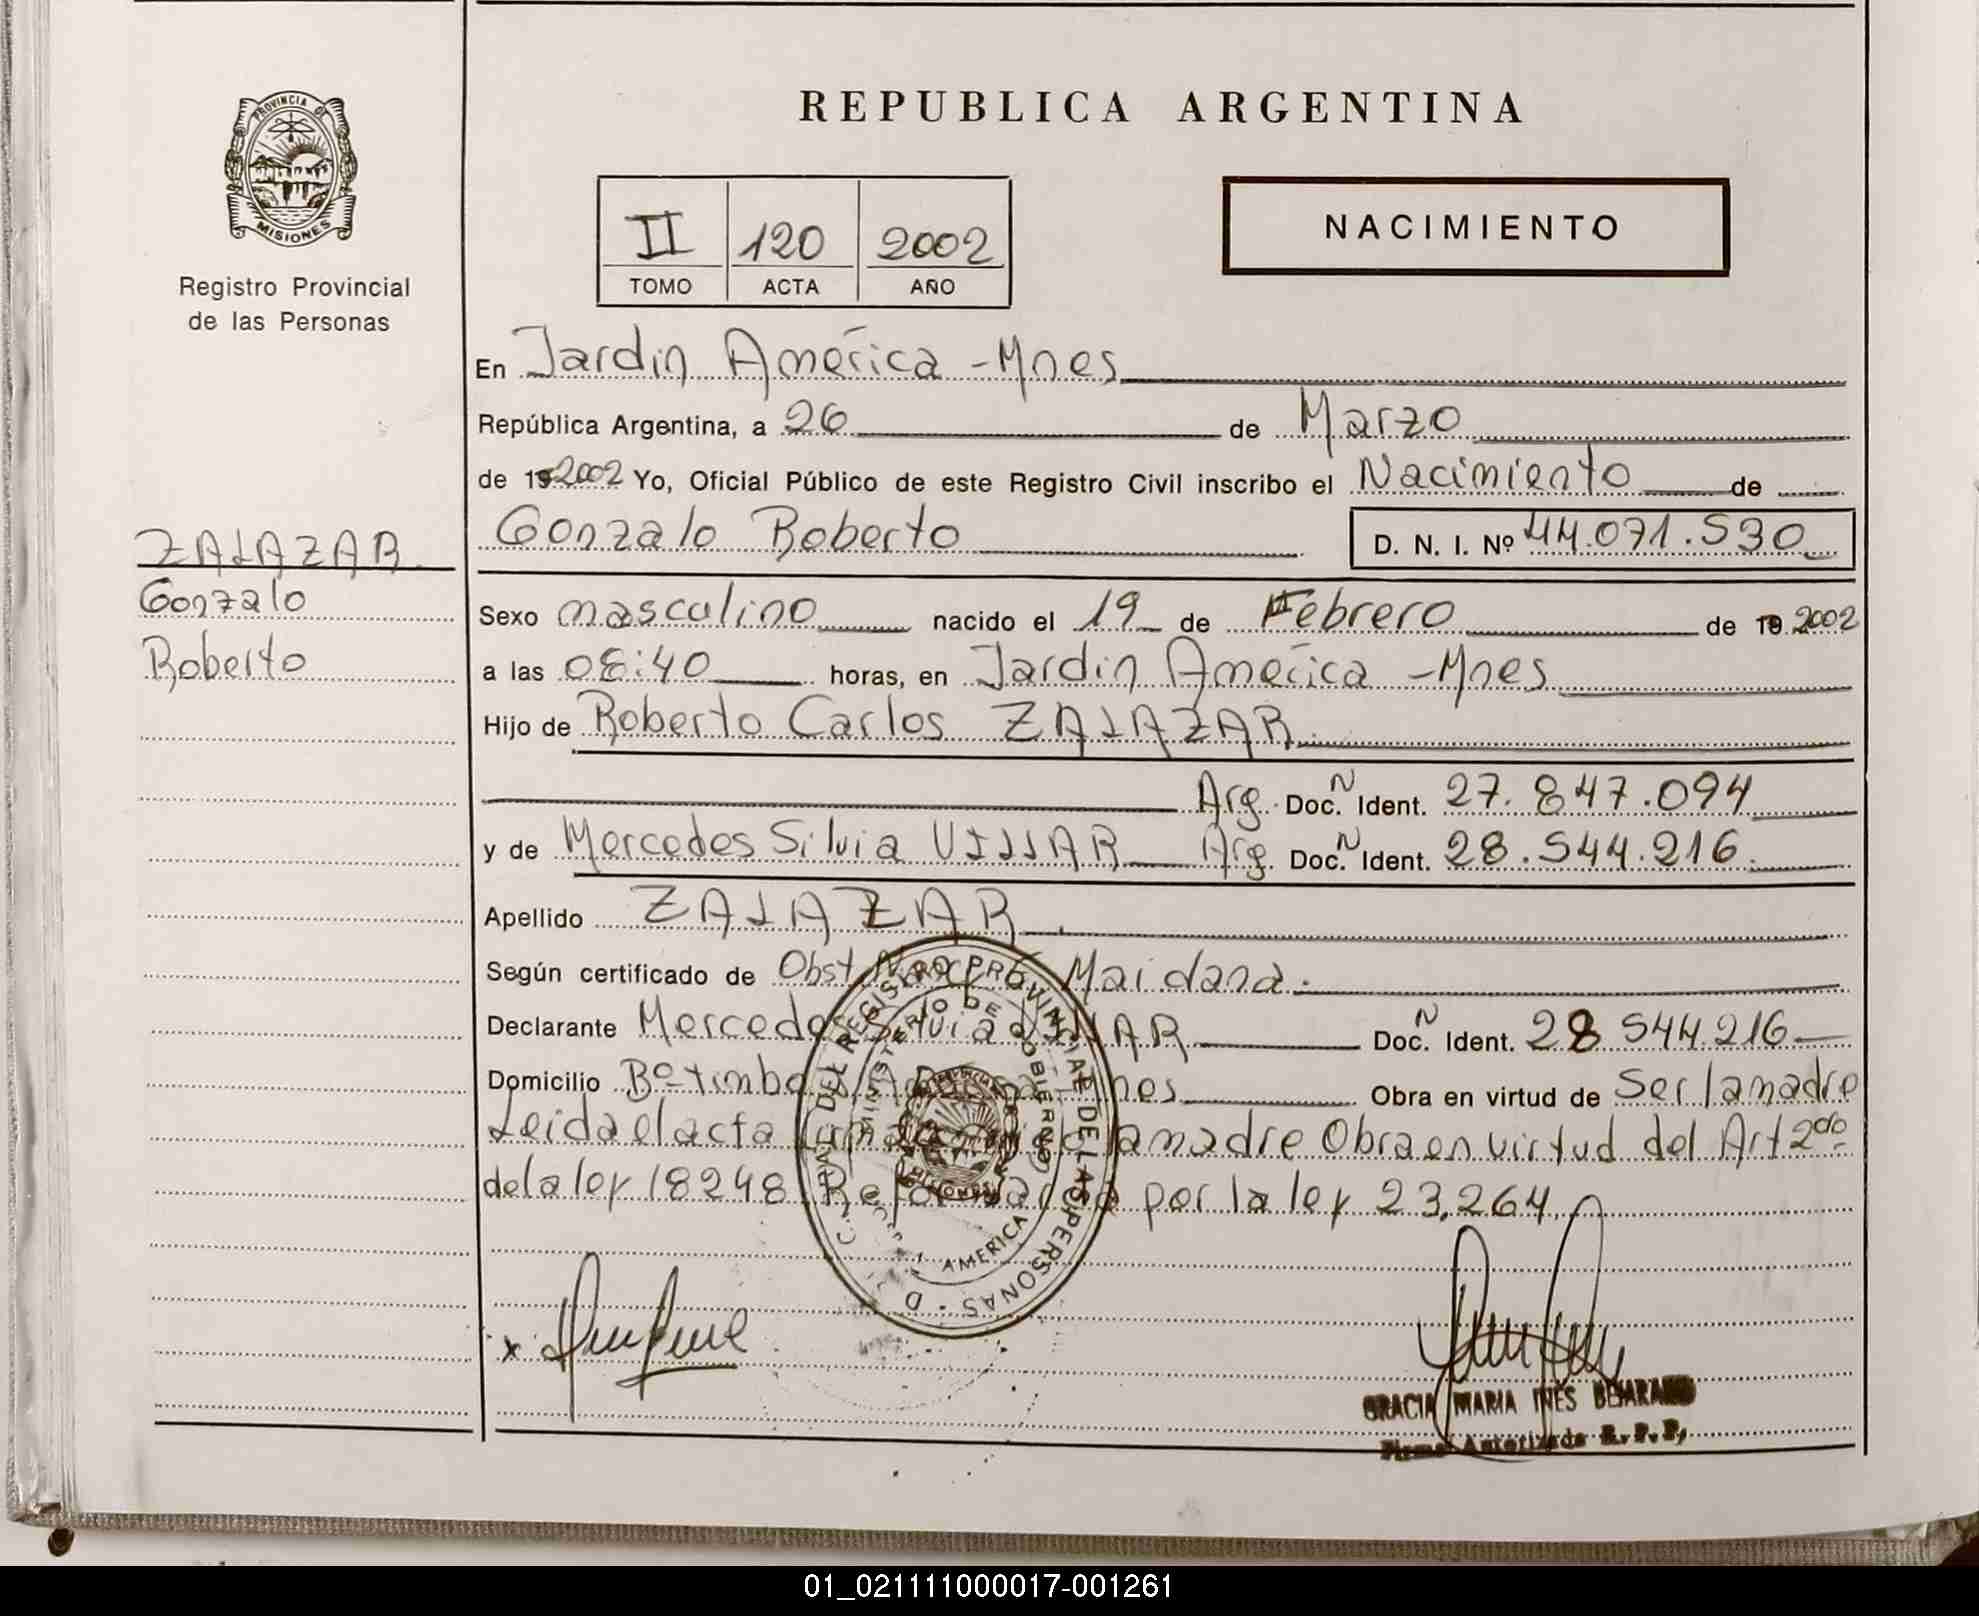 REPUBLICA ARGENTINA
PROVINCIA DE
MISIONES
Registro Provincial
de las Personas
II 120 2002
TOMO ACTA AÑO
NACIMIENTO
En Jardin América - Mnes
República Argentina, a 26 de Marzo
de 19 2002 Yo, Oficial Público de este Registro Civil inscribo el Nacimiento de
Gonzalo Roberto D. N. I. Nº 44.071.530
ZALAZAR
Gonzalo
Roberto
Sexo masculino nacido el 19 de Febrero de 19 2002
a las 08:40 horas, en Jardin América - Mnes
Hijo de Roberto Carlos ZALAZAR
Arg. Doc. N Ident. 27.847.094
y de Mercedes Silvia VILLAR Arg. Doc. N Ident. 28.544.216
Apellido ZALAZAR
Según certificado de Obst. Maidana.
Declarante Mercedes Silvia VILLAR Doc. N Ident. 28 544.216
Domicilio Bº Timbo Mnes Obra en virtud de Ser la madre
Leida el acta la madre Obra en virtud del Art 2do
de la ley 18248 por la ley 23.264
DEL REGISTRO PROVINCIAL DE LAS PERSONAS
MINISTERIO DE GOBIERNO
AMERICA
GRACIA MARIA INES BEJARANO
Firma Autorizada R.P.P.
01_021111000017-001261